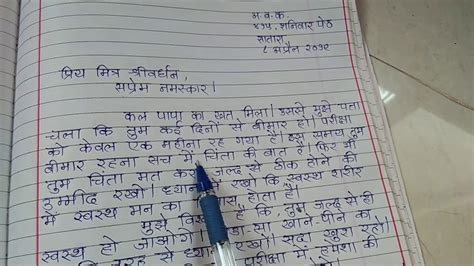 अ. ब. क.
४३५, शनिवार पेठ
सातारा,
८ अप्रैल २०१२
प्रिय मित्र श्रीवर्धन,
सप्रेम नमस्कार।
कल पापा का खत मिला। उससे मुझे पता
चला, कि तुम कई दिनों से बीमार हो। परीक्षा
को केवल एक महीना रह गया है। इस समय तुम
बीमार रहना सच में चिंता की बात है। फिर भी
तुम चिंता मत करो। जल्द से ठीक होने की
उम्मीद रखो। ध्यान में रखो कि स्वस्थ शरीर
में स्वस्थ मन का होता है।
मुझे है कि, तुम जल्द से ही
स्वस्थ हो जाओगे। खाने-पीने का
रखो। सदा खुश रहो।
तरह से परीक्षा में हमेशा की